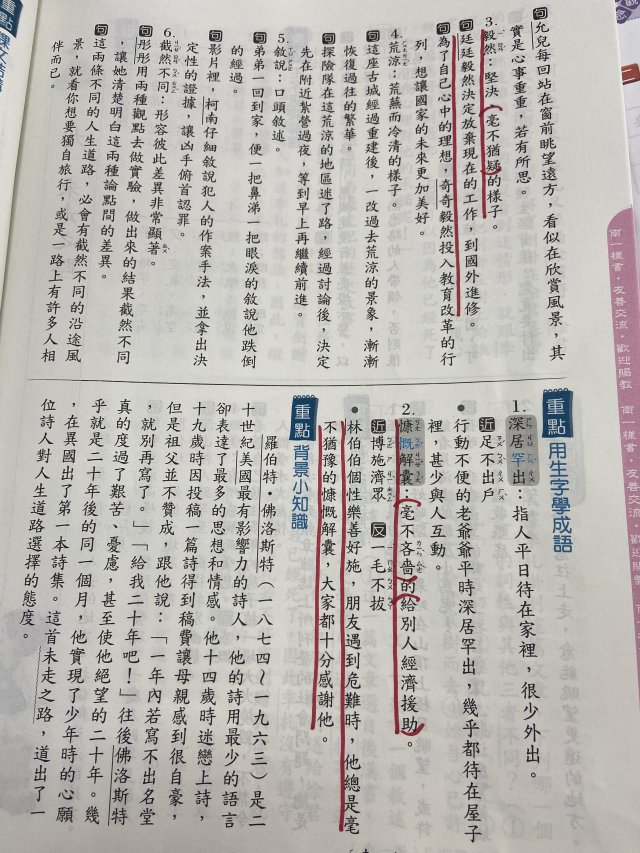 句 允兒每回站在窗前眺望遠方，看似在欣賞風景，其
實是心事重重，若有所思。
3. 毅然：堅決、毫不猶疑的樣子。
句 廷廷毅然決定放棄現在的工作，到國外進修。
句 為了自己心中的理想，奇奇毅然投入教育改革的行
列，想讓國家的未來更加美好。
4. 荒涼：荒蕪而冷清的樣子。
句 這座古城經過重建後，一改過去荒涼的景象，漸漸
恢復過往的繁華。
句 探險隊在這荒涼的地區迷了路，經過討論後，決定
先在附近紮營過夜，等到早上再繼續前進。
5. 敘說：口頭敘述。
句 弟弟一回到家，便一把鼻涕一把眼淚的敘說他跌倒
的經過。
句 影片裡，柯南仔細敘說犯人的作案手法，並拿出決
定性的證據，讓凶手俯首認罪。
6. 截然不同：形容彼此差異非常顯著。
句 彤彤用兩種觀點去做實驗，做出來的結果截然不同
，讓她清楚明白這兩種論點間的差異。
句 這兩條不同的人生道路，必會有截然不同的沿途風
景，就看你想要獨自旅行，或是一路上有許多人相
伴而已。
重點 用生字學成語
1. 深居罕出：指人平日待在家裡，很少外出。
近 足不出戶
• 行動不便的老爺爺平時深居罕出，幾乎都待在屋子
裡，甚少與人互動。
2. 慷慨解囊：毫不吝嗇的給別人經濟援助。
近 博施濟眾 反 一毛不拔
• 林伯伯個性樂善好施，朋友遇到危難時，他總是毫
不猶豫的慷慨解囊，大家都十分感謝他。
重點 背景小知識
羅伯特·佛洛斯特（一八七四～一九六三）是二
十世紀美國最有影響力的詩人，他的詩用最少的語言
卻表達了最多的思想和情感。他十四歲時迷戀上詩，
十九歲時因投稿一篇詩得到稿費讓母親感到很自豪，
但是祖父並不贊成，跟他說：「一年內若寫不出名堂
，就別再寫了。」「給我二十年吧！」往後佛洛斯特
真的度過了艱苦、憂慮，甚至使他絕望的二十年。幾
乎就是二十年後的同一個月，他實現了少年時的心願
，在異國出了第一本詩集。這首未走之路，道出了一
位詩人對人生道路選擇的態度。
南一樣書·友善交流·歡迎賜教 南一樣書·友善交流 歡迎賜教
重點